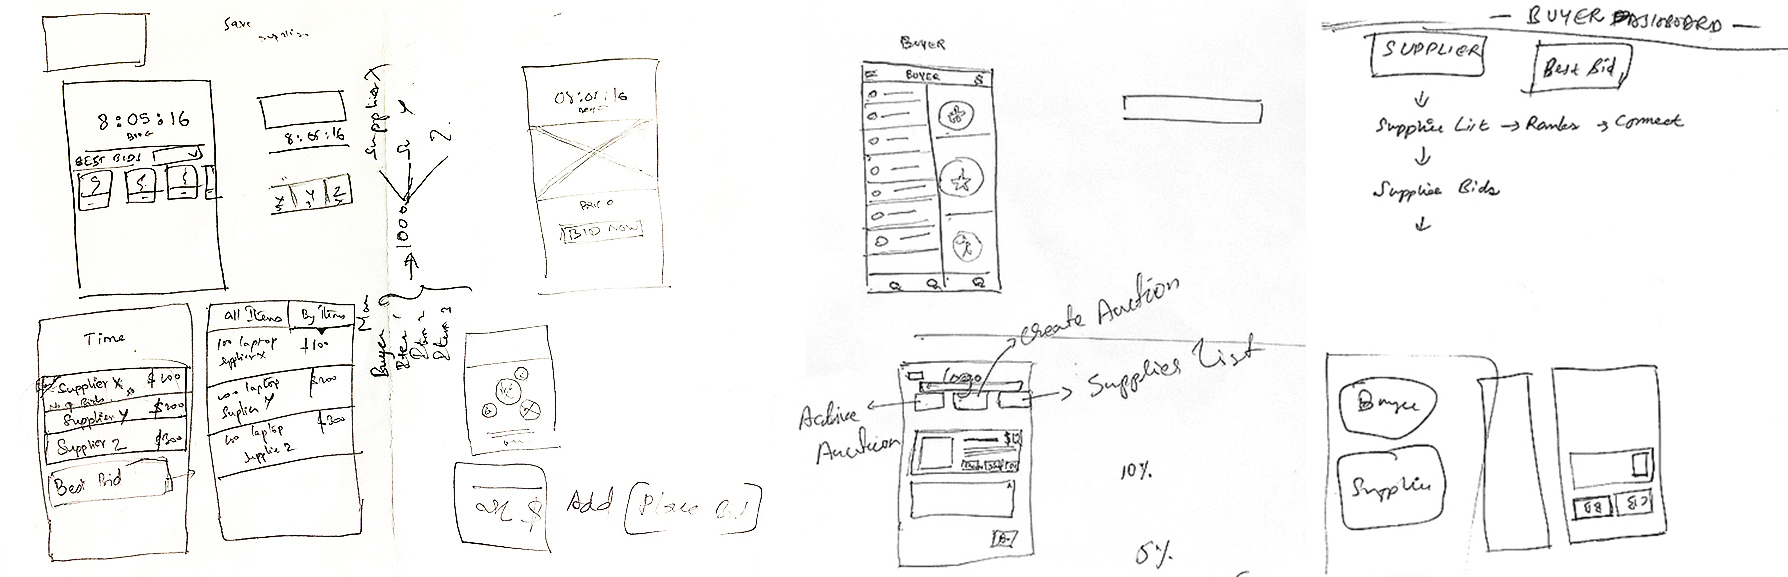 Save
Supplier
8:05:16
BEST BIDS
8:05:16
Supplier
X
Y
Z
1000
08:05:16
BID NOW
Time
Supplier X $100
No of Bids
Supplier Y $200
Supplier Z $300
Best Bid
All Items
By Items
100 laptop $100
Supplier X
100 laptop $200
Suplier Y
100 laptop $300
Supplie Z
Buyer
Item 1
Item 2
Item 3
$
Add Place Bid
BUYER
BUYER $
Create Auction
Logo
Supplies List
Active
Auction
10%
5%
— BUYER DASHBOARD —
SUPPLIER
Best Bid
Supplie List → Ranks → Connect
Supplie Bids
Buyer
Supplie